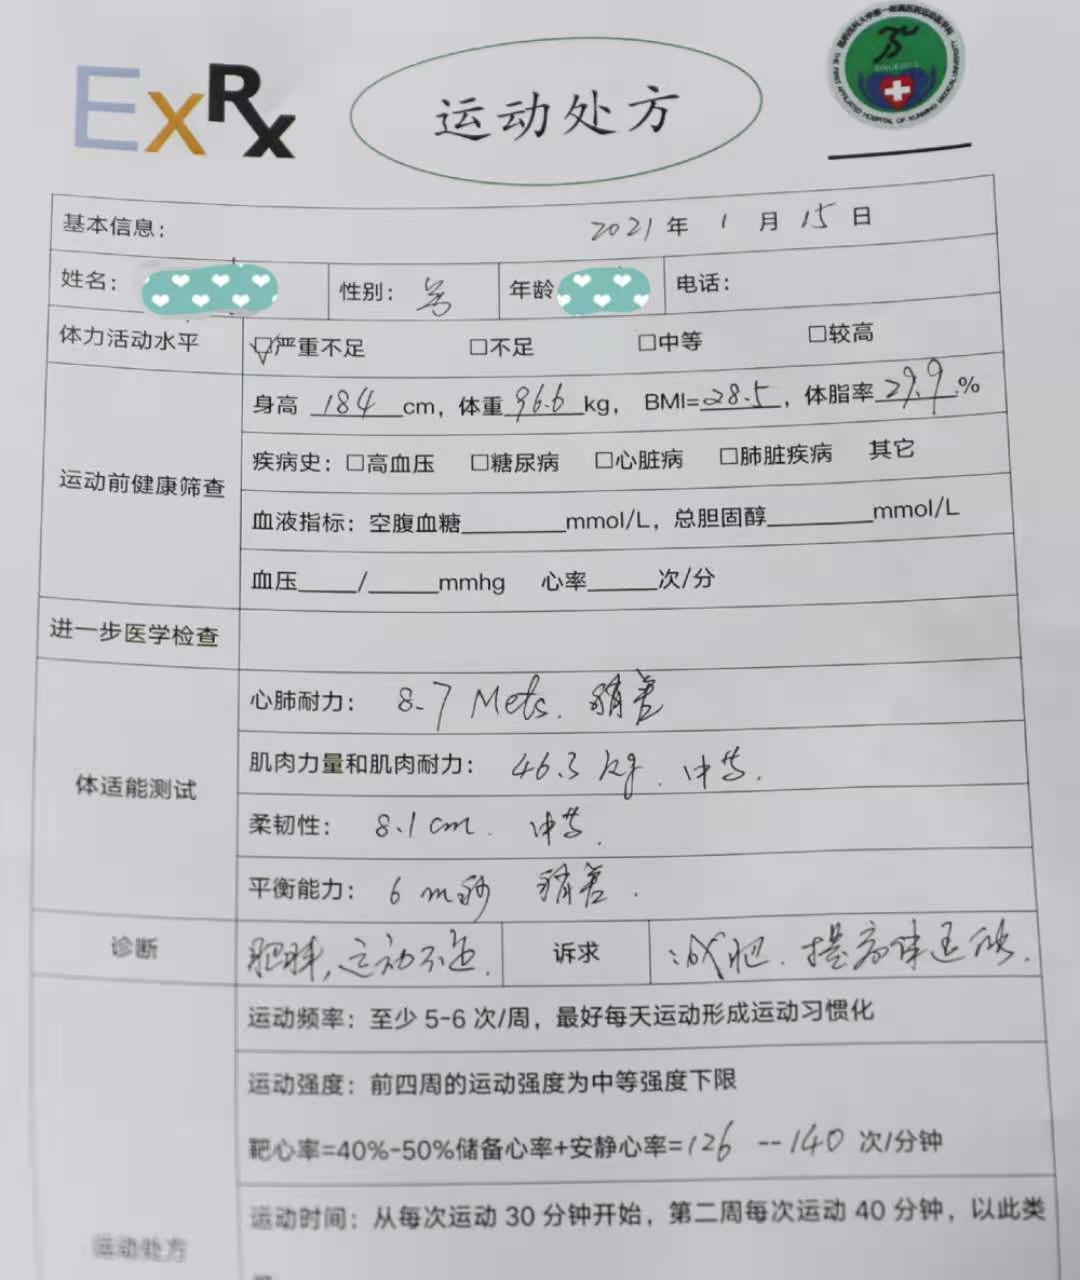 ExRx
运动处方
昆明医科大学第一附属医院运动医学科
SINCE2013
THE FIRST AFFILIATED HOSPITAL OF KUNMING MEDICAL UNIVERSITY
基本信息: 2021 年 1 月 15 日
姓名: 性别: 男 年龄 电话:
体力活动水平 ☑严重不足 □不足 □中等 □较高
身高 184 cm, 体重 96.6 kg, BMI=28.5, 体脂率 29.9 %
疾病史: □高血压 □糖尿病 □心脏病 □肺脏疾病 其它
运动前健康筛查
血液指标: 空腹血糖________mmol/L, 总胆固醇________mmol/L
血压____/_____mmhg 心率_____次/分
进一步医学检查
心肺耐力: 8.7 Mets. 稍差
肌肉力量和肌肉耐力: 46.3 kg. 中等.
体适能测试
柔韧性: 8.1 cm. 中等.
平衡能力: 6 m秒 稍差.
诊断 肥胖,运动不足. 诉求 减肥. 提高体适能.
运动频率: 至少 5-6 次/周, 最好每天运动形成运动习惯化
运动强度: 前四周的运动强度为中等强度下限
靶心率=40%-50%储备心率+安静心率=126 --140 次/分钟
运动时间: 从每次运动 30 分钟开始, 第二周每次运动 40 分钟, 以此类
运动处方